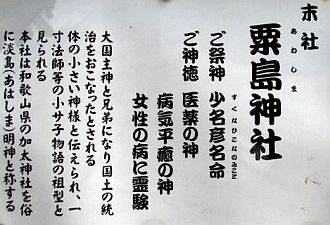 末社
粟島神社
あわしま
ご祭神 少名彦名命
すくなひこなのみこと
ご神徳 医薬の神
病気平癒の神
女性の病に霊験
大国主神と兄弟になり国土の統
治をおこなったとされる
体の小さい神様と伝えられ、一
寸法師等の小サ子物語の祖型と
見られる
本社は和歌山県の加太神社を俗
に淡島(あはしま)明神と称する